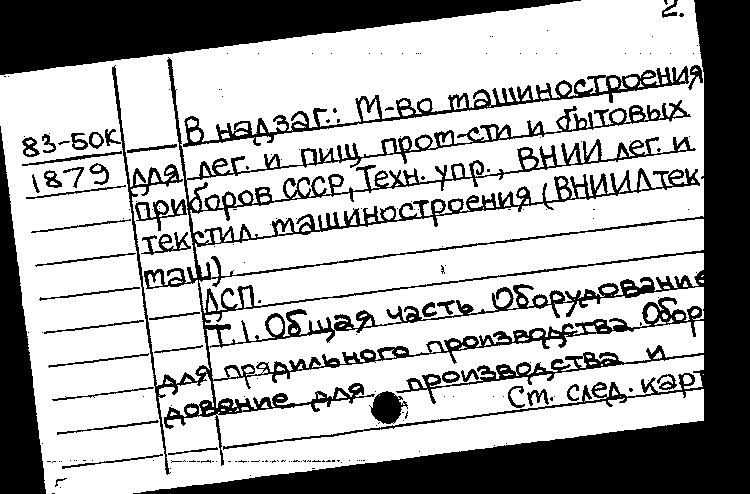 2.
83-50К
1879
В надзаг.: М-во машиностроения
для лег. и пищ. пром-сти и бытовых
приборов СССР, Техн. упр., ВНИИ лег. и
текстил. машиностроения (ВНИИЛтек-
маш).
ДСП.
Т.1. Общая часть. Оборудование
для прядильного производства. Обор
дование для производства и
См. след. карт